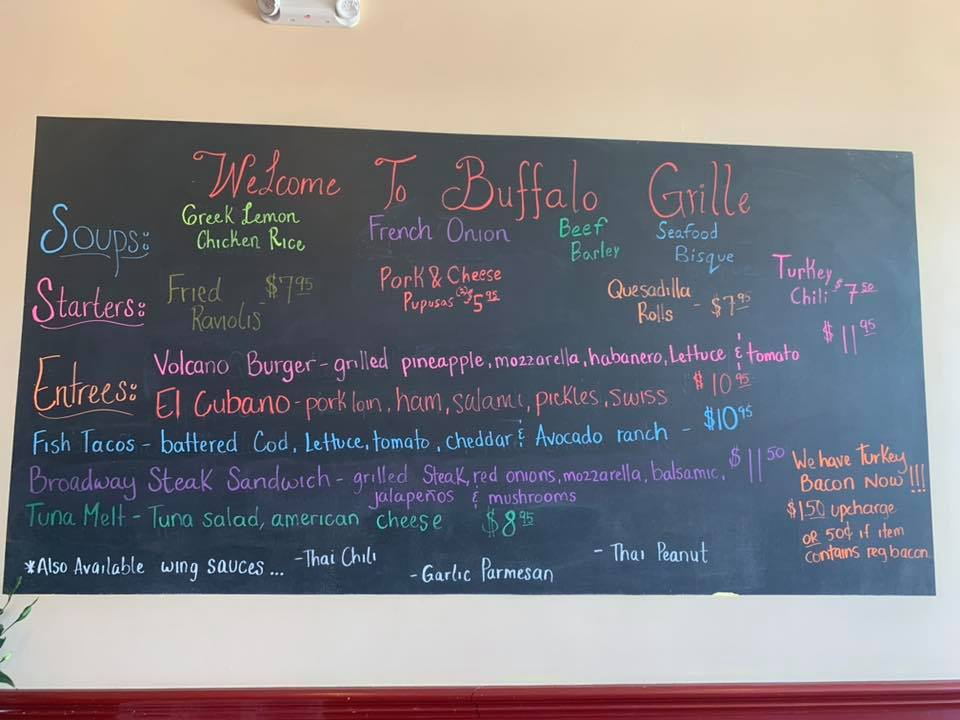 Welcome To Buffalo Grille
Soups: Greek Lemon Chicken Rice French Onion Beef Barley Seafood Bisque
Starters: Fried Raviolis - $7.95 Pork & Cheese Pupusas (3) $5.95 Quesadilla Rolls - $7.95 Turkey Chili $7.50
Entrees: Volcano Burger - grilled pineapple, mozzarella, habanero, Lettuce & tomato $11.95
El Cubano - pork loin, ham, salami, pickles, swiss $10.95
Fish Tacos - battered Cod, Lettuce, tomato, cheddar & Avocado ranch - $10.95
Broadway Steak Sandwich - grilled Steak, red onions, mozzarella, balsamic, $11.50
jalapeños & mushrooms
Tuna Melt - Tuna salad, american cheese $8.95
We have Turkey
Bacon Now!!!
$1.50 upcharge
OR 50¢ if item
contains reg bacon
*Also Available wing sauces... - Thai Chili - Garlic Parmesan - Thai Peanut